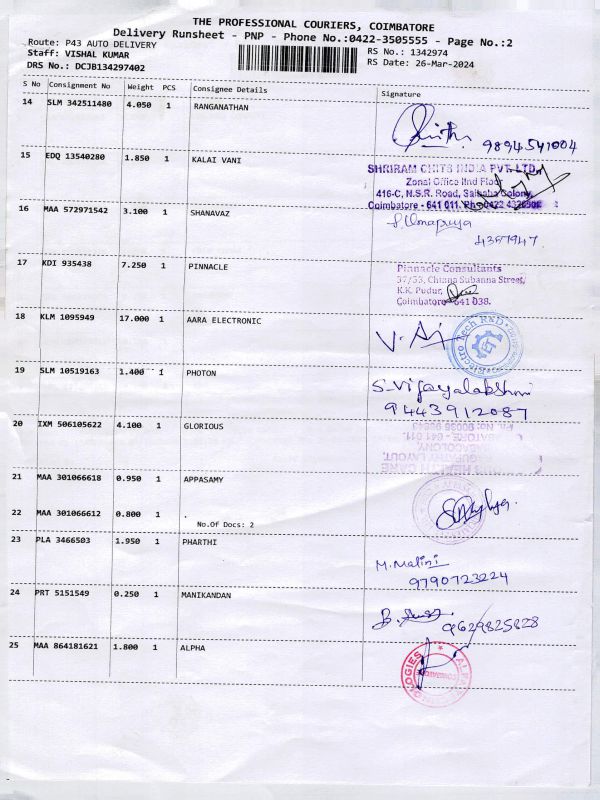 THE PROFESSIONAL COURIERS, COIMBATORE
Delivery Runsheet - PNP - Phone No.:0422-3505555 - Page No.:2
Route: P43 AUTO DELIVERY
RS No.: 1342974
Staff: VISHAL KUMAR
RS Date: 26-Mar-2024
DRS No.: DCJB134297402
S No Consignment No Weight PCS Consignee Details Signature
14 SLM 342511480 4.050 1 RANGANATHAN
9894541004
15 EDQ 13540280 1.850 1 KALAI VANI
SHRIRAM CHITS INDIA PVT. LTD.
Zonal Office IInd Floor
416-C, N.S.R. Road, Saibaba Colony,
Coimbatore - 641 011. Ph: 0422
16 MAA 572971542 3.100 1 SHANAVAZ
4357947
17 KDI 935438 7.250 1 PINNACLE
Pinnacle Consultants
37/53, Chinna Subanna Street,
K.K. Pudur,
Coimbatore - 641 038.
18 KLM 1095949 17.000 1 AARA ELECTRONIC
Electro Tech R&D
19 SLM 10519163 1.400 1 PHOTON
S. Vijayalakshmi
9443912087
20 IXM 506105622 4.100 1 GLORIOUS
HEALTH CARE
LAYOUT,
COLONY,
641 011.
21 MAA 301066618 0.950 1 APPASAMY
22 MAA 301066612 0.800 1 .
No.Of Docs: 2
23 PLA 3466503 1.950 1 PHARTHI
M. Malini
9790723224
24 PRT 5151549 0.250 1 MANIKANDAN
9629825828
25 MAA 864181621 1.800 1 ALPHA